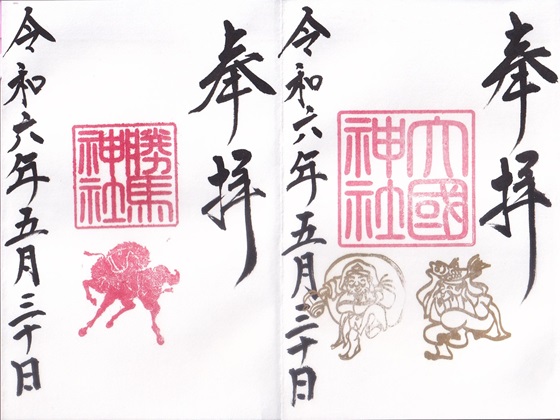 奉拝
大國神社
令和六年五月三十日
奉拝
勝馬神社
令和六年五月三十日